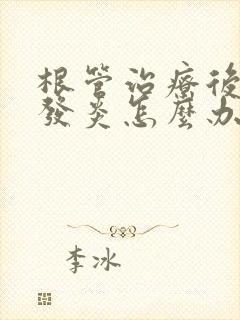 根管治療後
發炎怎麼办
李冰